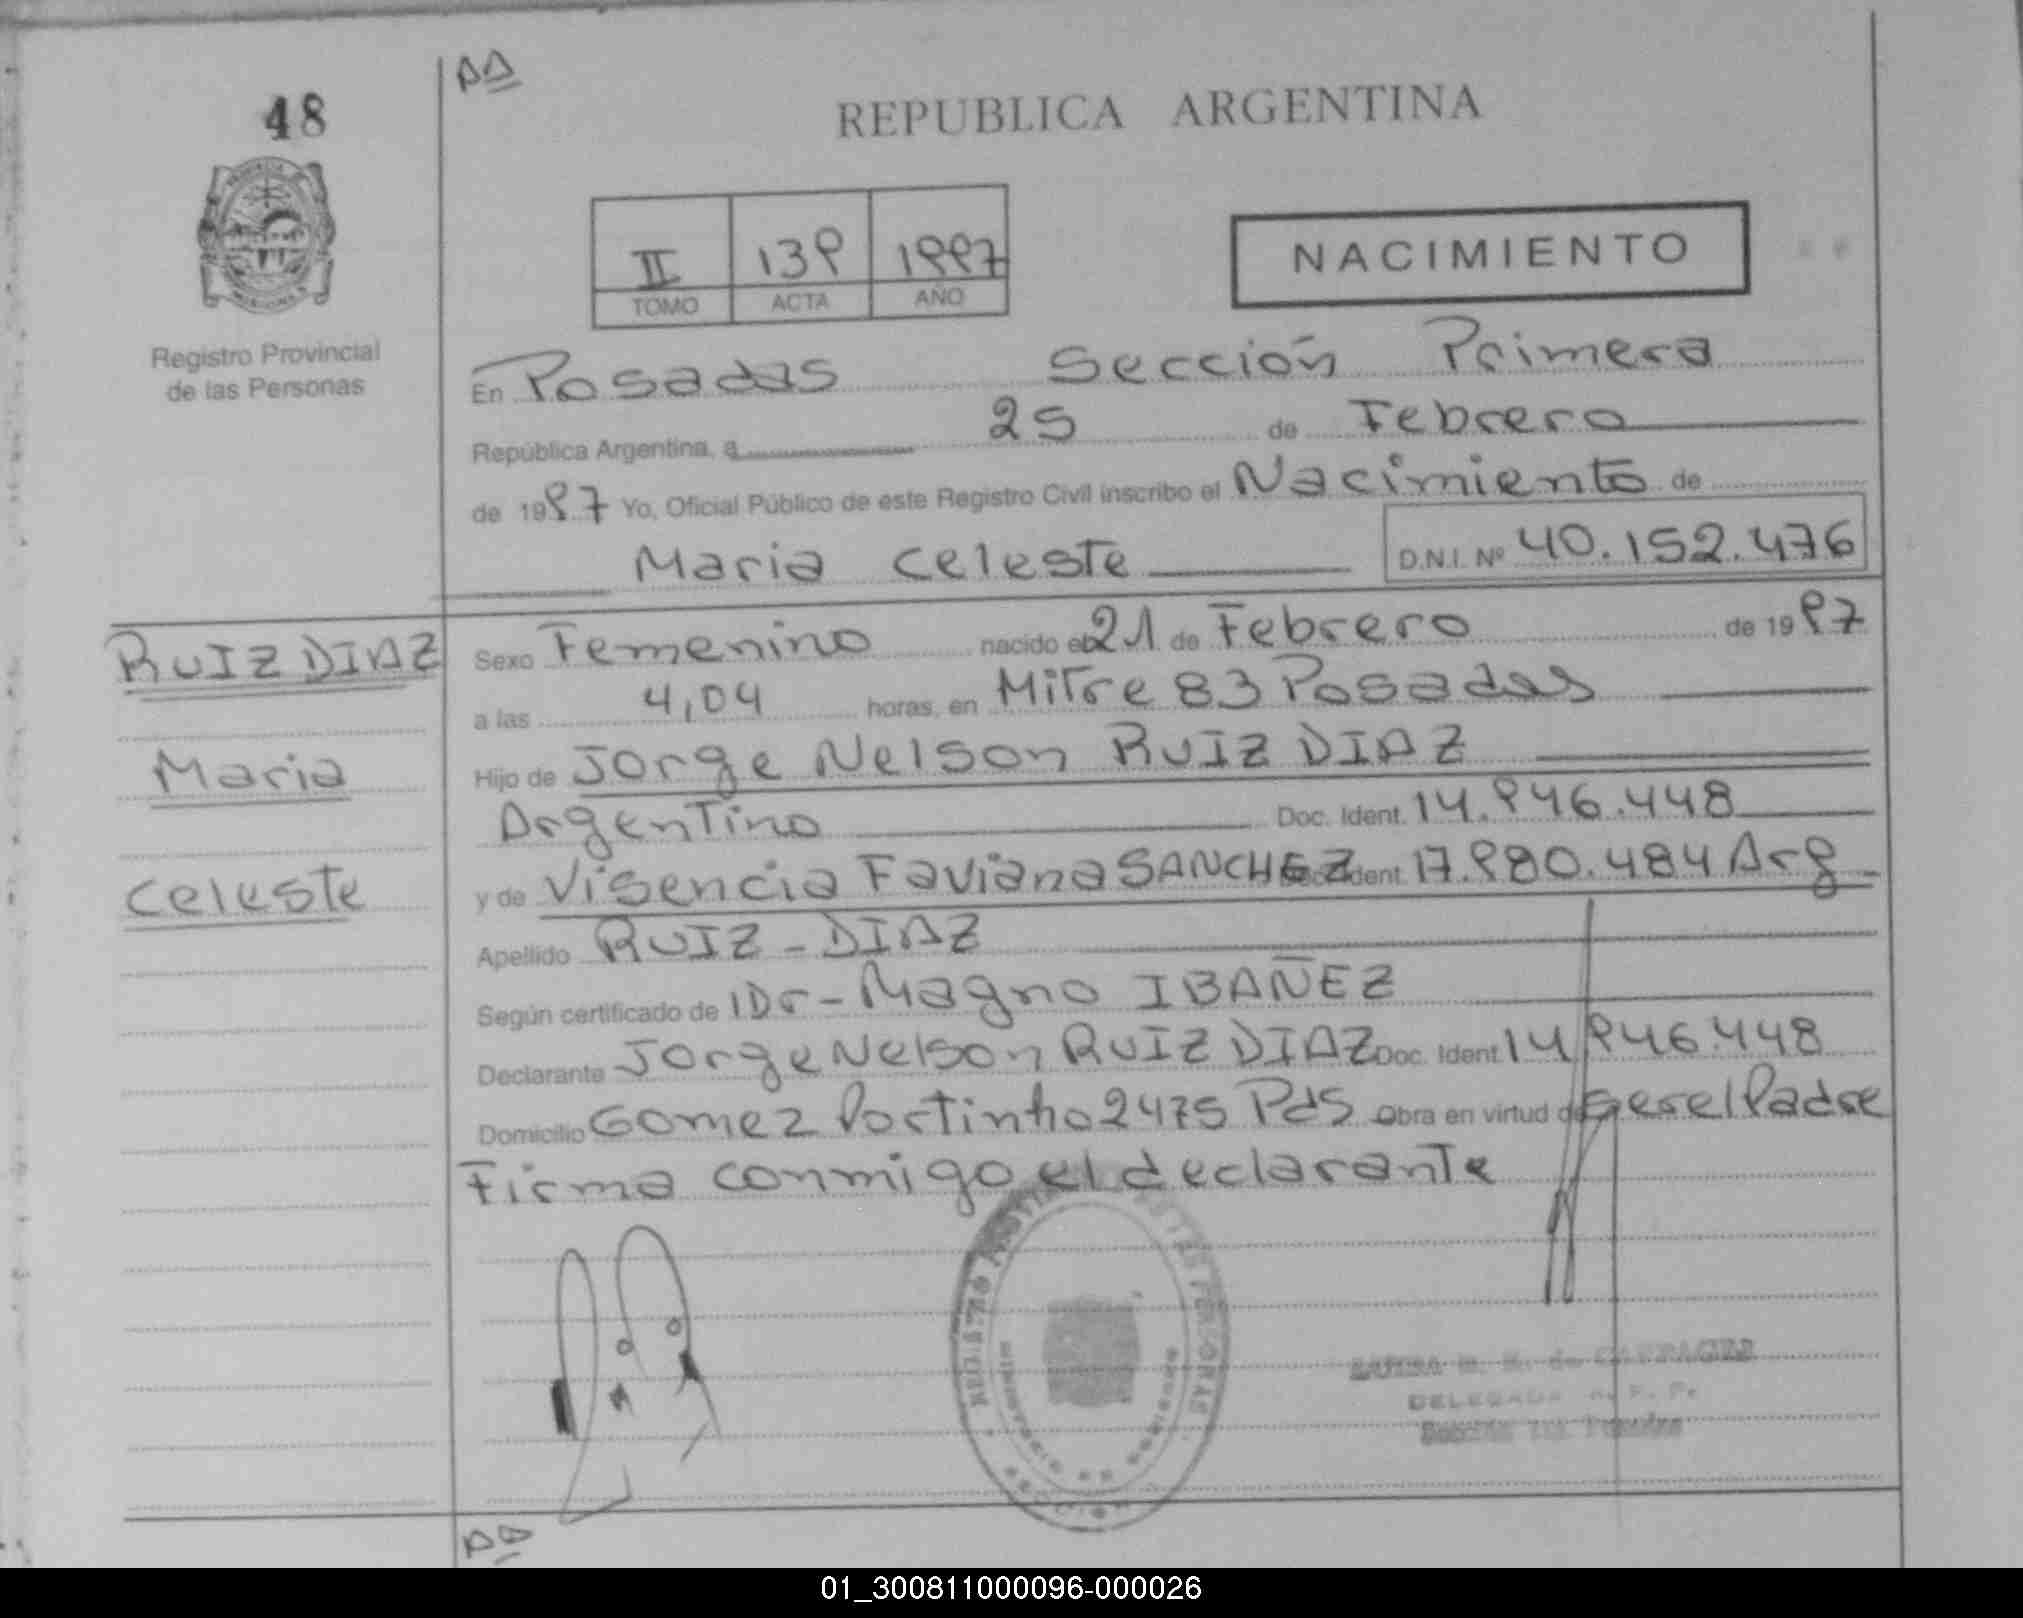 48
REPUBLICA ARGENTINA
II 139 1997
TOMO ACTA AÑO
NACIMIENTO
Registro Provincial
de las Personas
En Posadas Sección Primera
República Argentina, a 25 de Febrero
de 1997 Yo, Oficial Público de este Registro Civil inscribo el Nacimiento de
Maria Celeste D.N.I. Nº 40.152.476
RUIZ DIAZ
Maria
Celeste
Sexo Femenino nacido el 21 de Febrero de 1997
a las 4,04 horas, en Mitre 83 Posadas
Hijo de Jorge Nelson RUIZ DIAZ
Argentino Doc. Ident. 14.946.448
y de Visencia Faviana SANCHEZ Doc. Ident. 17.980.484 Arg
Apellido RUIZ - DIAZ
Según certificado de Dr - Magno IBAÑEZ
Declarante Jorge Nelson RUIZ DIAZ Doc. Ident. 14.946.448
Domicilio Gomez Portinho 2475 Pds Obra en virtud de ser el Padre
Firma conmigo el declarante
01_300811000096-000026